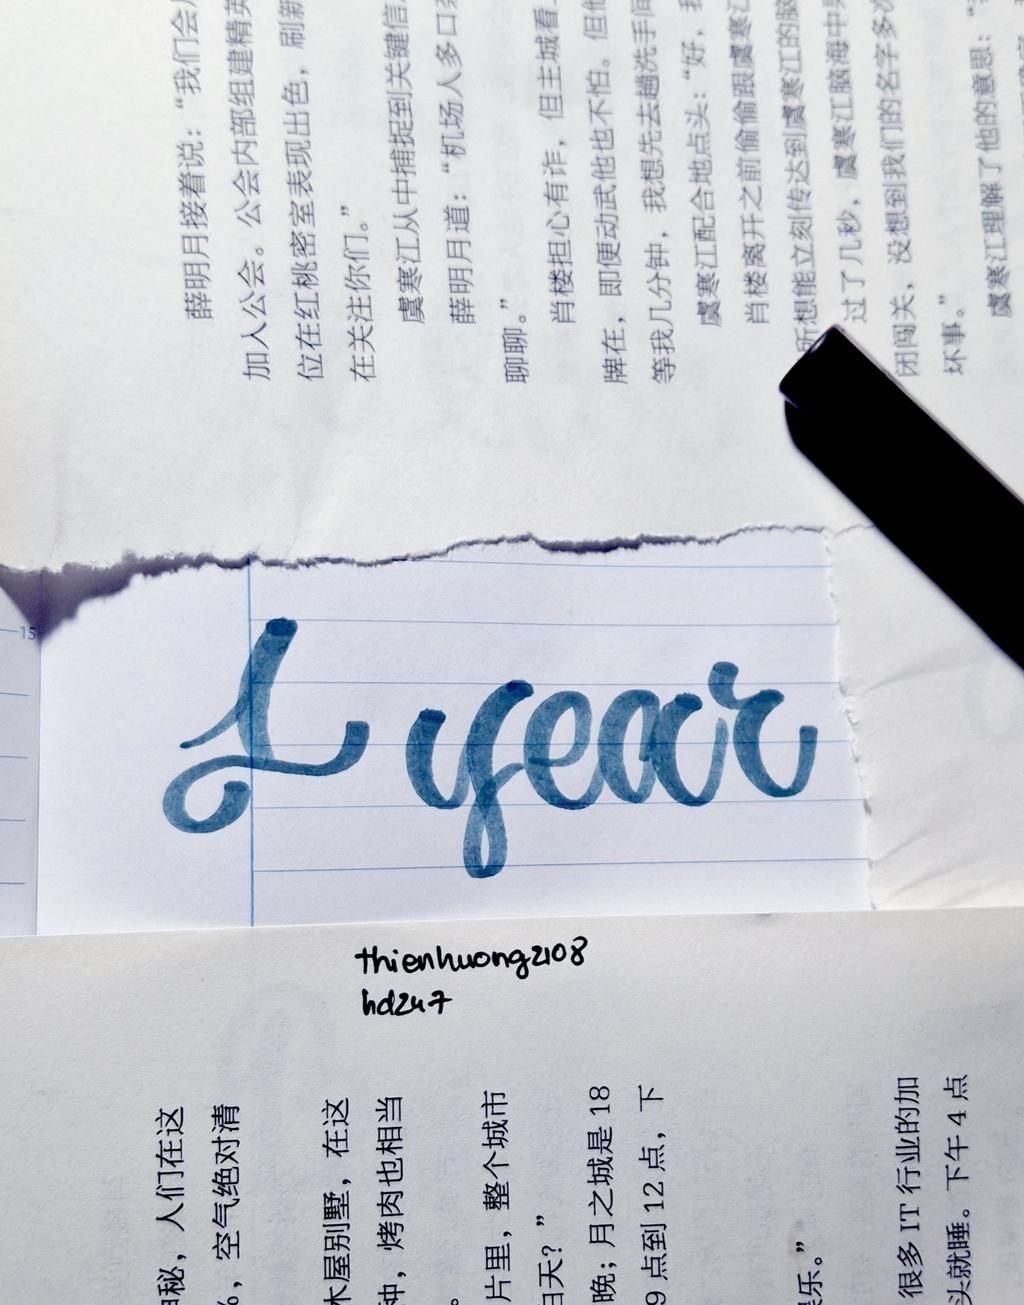 薛明月接着说：“我们会
加入公会。公会内部组建精英
位在红桃密室表现出色，刷新
在关注你们。”
虞寒江从中捕捉到关键信
薛明月道：“机场人多口杂
聊聊。”
肖楼担心有诈，但主城看
牌在，即便动武他也不怕。但他
等我几分钟，我想先去趟洗手间
虞寒江配合地点头：“好，我
肖楼离开之前偷偷跟虞寒江
所想能立刻传达到虞寒江的脑
过了几秒，虞寒江脑海中果
闭闯关，没想到我们的名字多次
坏事。”
虞寒江理解了他的意思：“
15
1 year
thienhuong2108
hd247
秘，人们在这
，空气绝对清
木屋别墅，在这
种，烤肉也相当
。
片里，整个城市
白天？”
晚；月之城是 18
9 点到 12 点，下
乐。”
很多 IT 行业的加
头就睡。下午 4 点